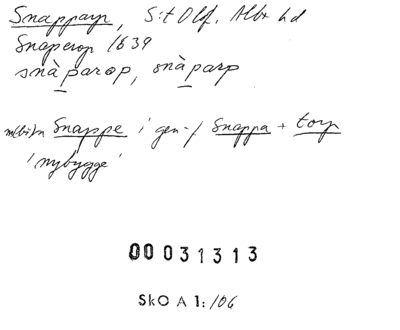 Snapparp, S:t Olf. Albo hd
Snaperop 1639
snàparop, snàparp
mbin Snappe i gen-f Snappa + torp
'nybygge'
00031313
SkO A 1:106